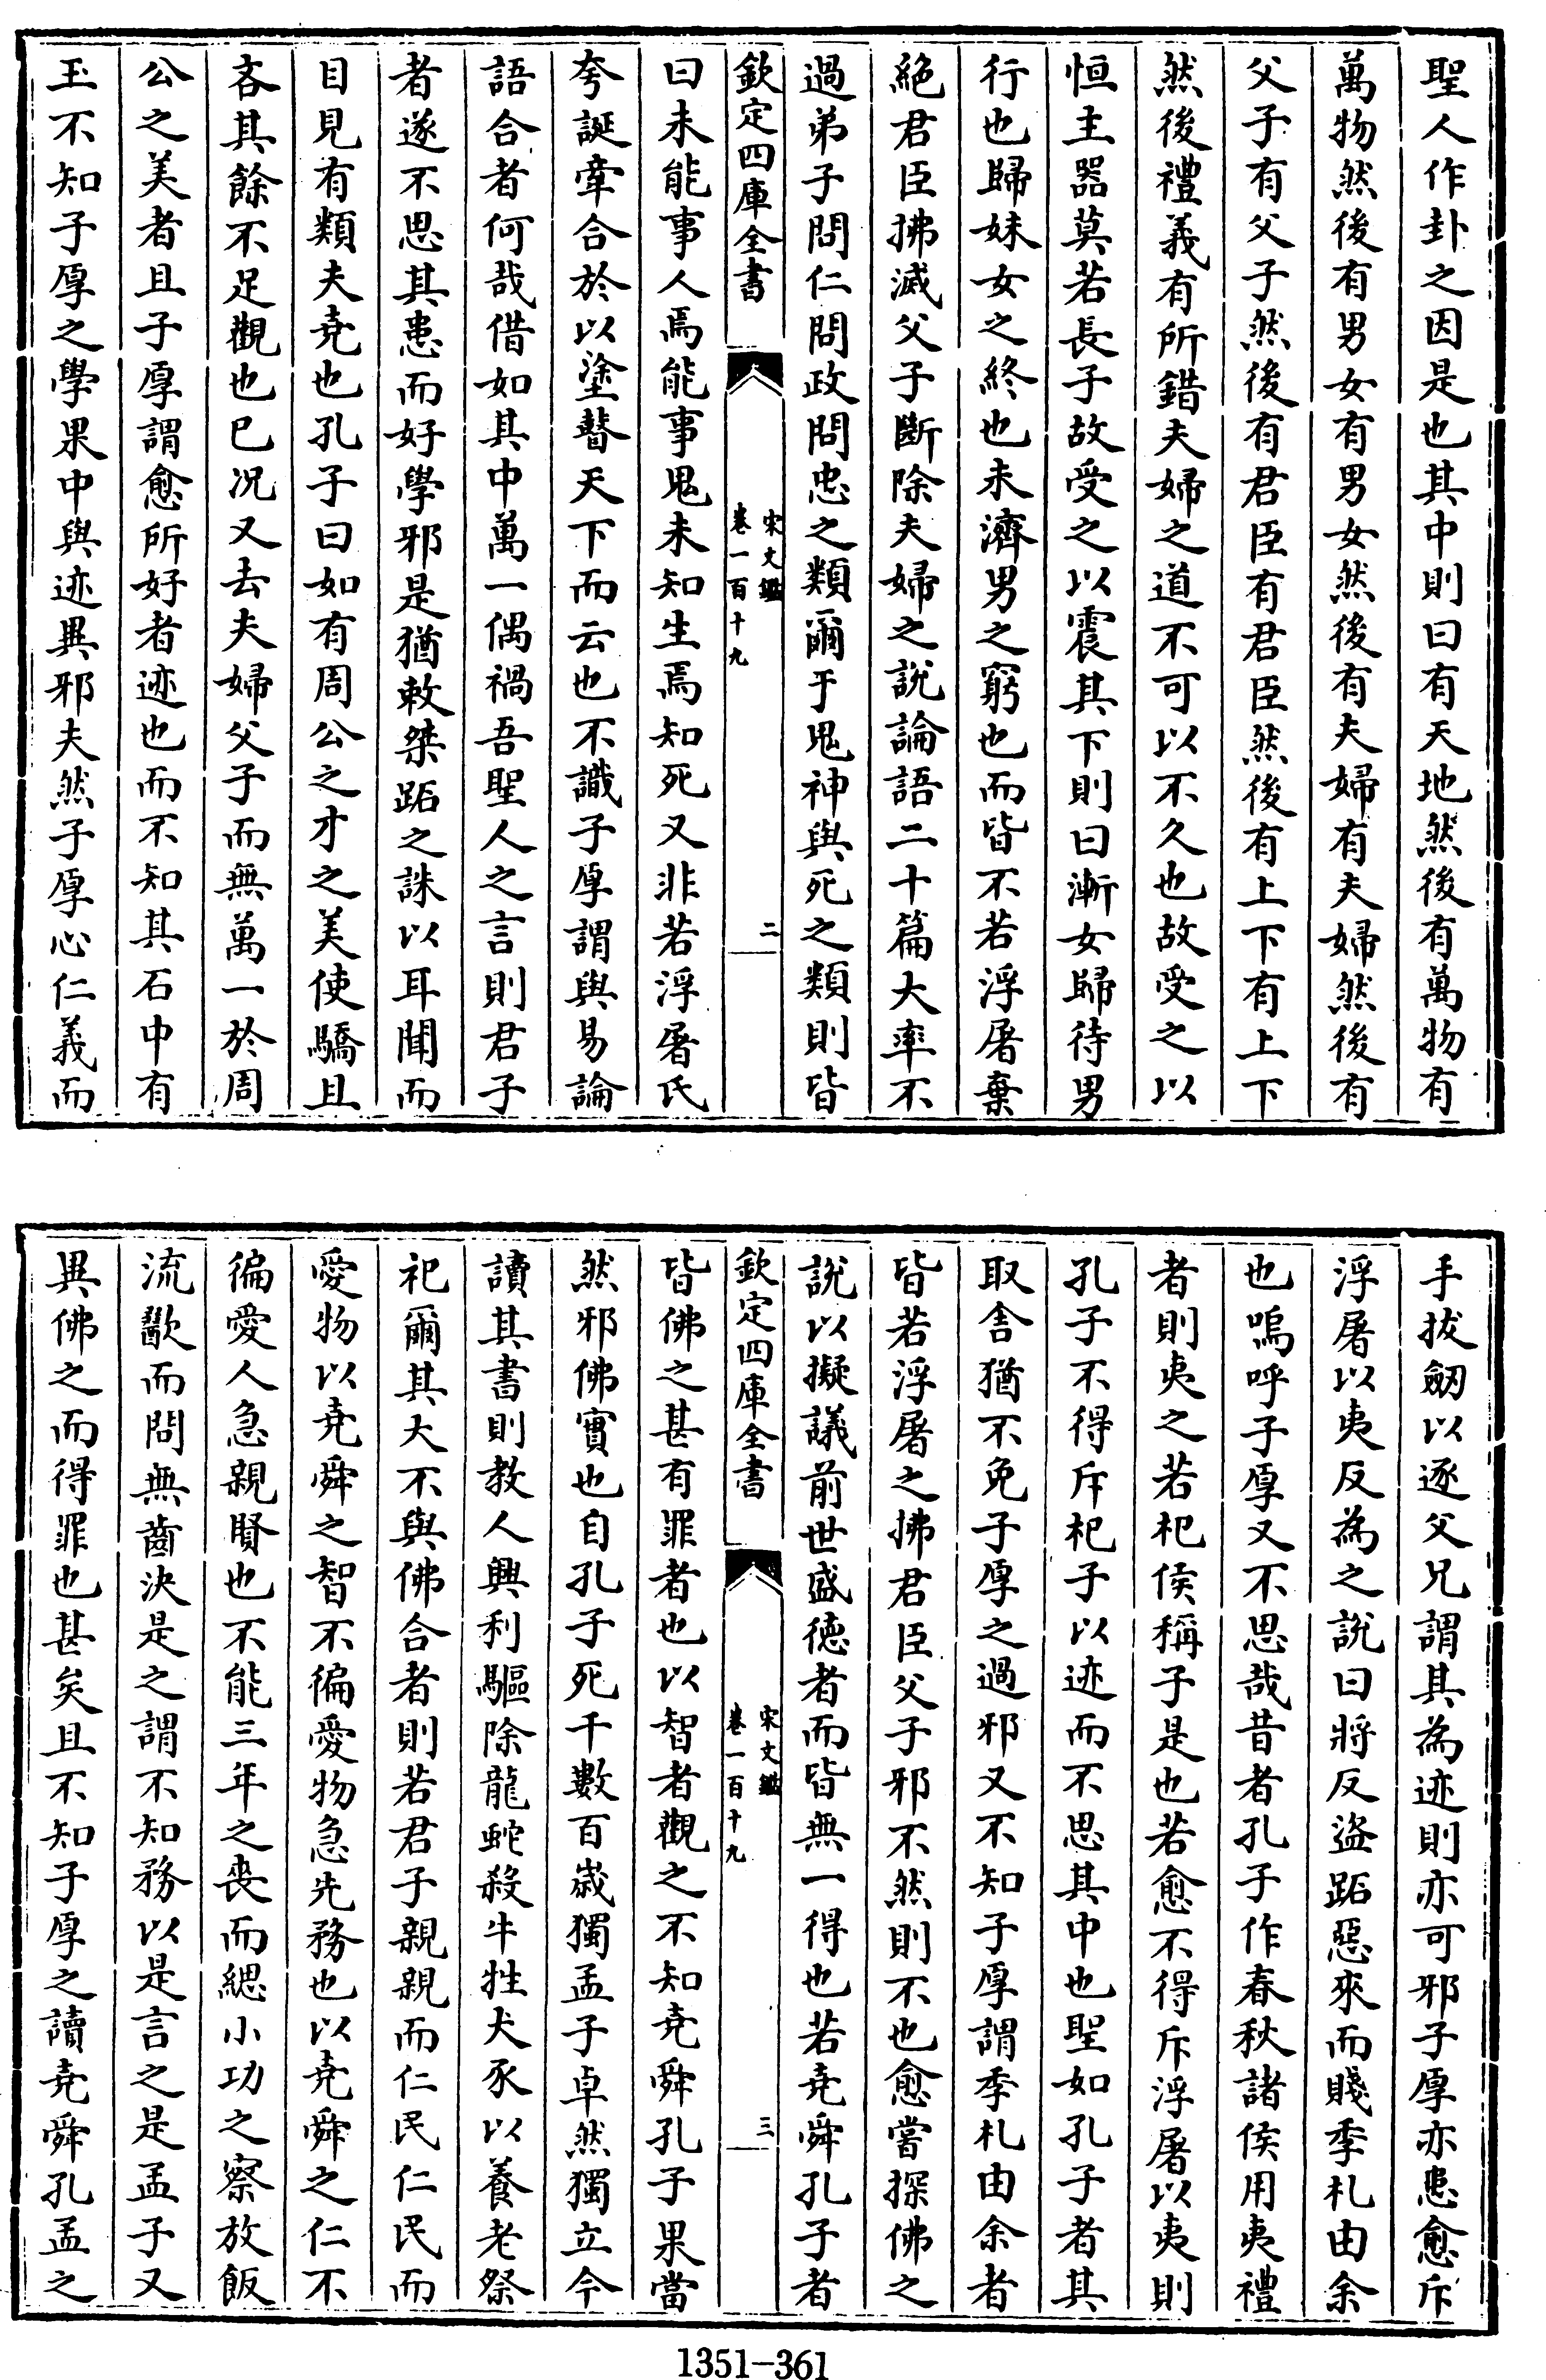 聖人作卦之因是也其中則曰有天地然後有萬物有
萬物然後有男女有男女然後有夫婦有夫婦然後有
父子有父子然後有君臣有君臣然後有上下有上下
然後禮義有所錯夫婦之道不可以不久也故受之以
恒主器莫若長子故受之以震其下則曰漸女歸待男
行也歸妹女之終也未濟男之窮也而皆不若浮屠棄
絶君臣拂滅父子斷除夫婦之説論語二十篇大率不
過弟子問仁問政問忠之類爾于鬼神與死之類則皆
欽定四庫全書
宋文鑑
卷一百十九
二
曰未能事人焉能事鬼未知生焉知死又非若浮屠氏
夸誕牽合於以塗瞽天下而云也不識子厚謂與易論
語合者何哉借如其中萬一偶禍吾聖人之言則君子
者遂不思其患而好學邪是猶敕桀跖之誅以耳聞而
目見有類夫堯也孔子曰如有周公之才之美使驕且
吝其餘不足觀也已況又去夫婦父子而無萬一於周
公之美者且子厚謂愈所好者迹也而不知其石中有
玉不知子厚之學果中與迹異邪夫然子厚心仁義而
手拔劒以逐父兄謂其為迹則亦可邪子厚亦患愈斥
浮屠以夷反為之說曰將反盜跖惡來而賤季札由余
也嗚呼子厚又不思哉昔者孔子作春秋諸侯用夷禮
者則夷之若杞侯稱子是也若愈不得斥浮屠以夷則
孔子不得斥杞子以迹而不思其中也聖如孔子者其
取舍猶不免子厚之過邪又不知子厚謂季札由余者
皆若浮屠之拂君臣父子邪不然則不也愈嘗探佛之
說以擬議前世盛德者而皆無一得也若堯舜孔子者
欽定四庫全書
宋文鑑
卷一百十九
三
皆佛之甚有罪者也以智者觀之不知堯舜孔子果當
然邪佛實也自孔子死千數百歲獨孟子卓然獨立今
讀其書則教人興利驅除龍蛇殺牛牲犬豕以養老祭
祀爾其大不與佛合者則若君子親親而仁民仁民而
愛物以堯舜之智不徧愛物急先務也以堯舜之仁不
徧愛人急親賢也不能三年之喪而緦小功之察放飯
流歠而問無齒決是之謂不知務以是言之是孟子又
異佛之而得罪也甚矣且不知子厚之讀堯舜孔孟之
1351-361